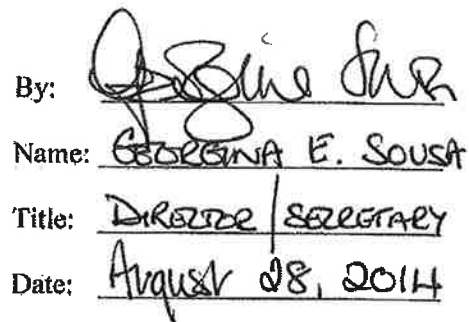 By: Georgina Sousa
Name: GEORGINA E. SOUSA
Title: DIRECTOR / SECRETARY
Date: August 28, 2014